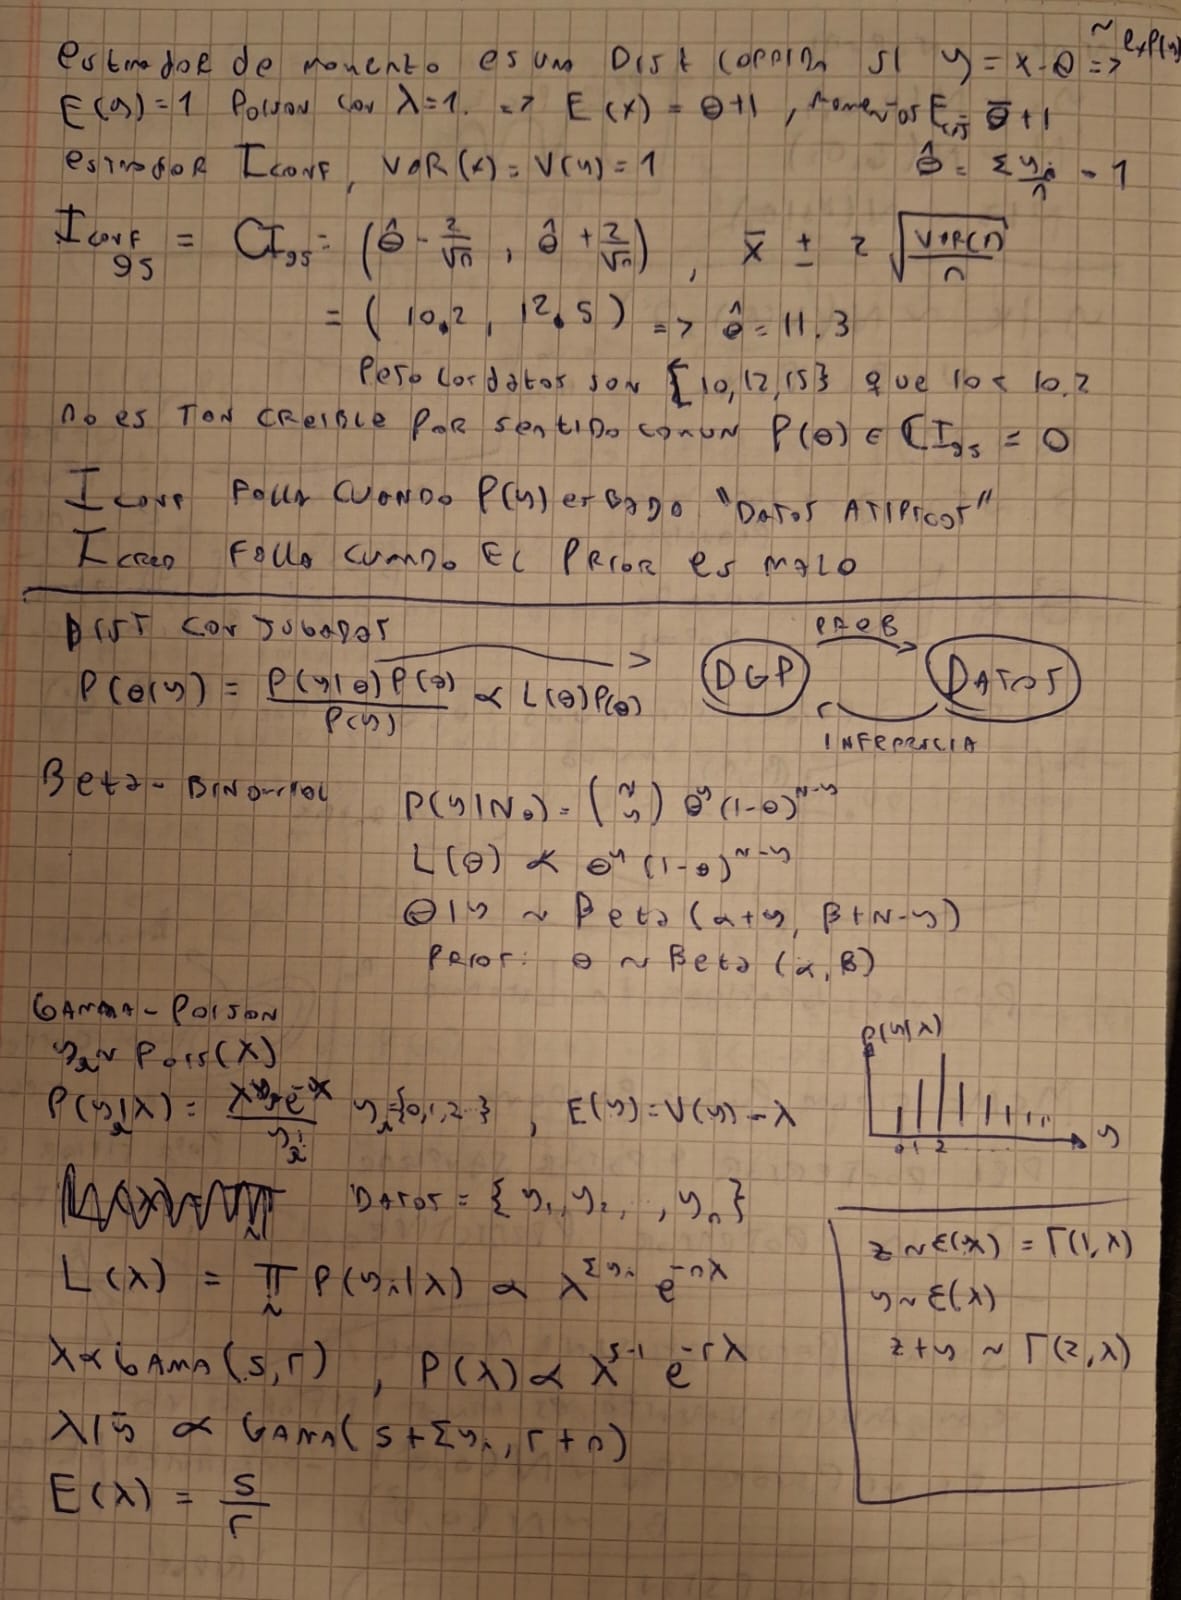 estimador de momento es una Dist corrida si y = x - θ => ~ exp(1)
E(y) = 1 Poison con λ=1. => E(x) = θ+1 , momentos E = θ̄ + 1
estimador I conf , VAR(x) = V(y) = 1 θ̂ = Σ yi/n - 1
I conf 95 = CI95 = (θ̂ - 2/√n , θ̂ + 2/√n) , x̄ ± 2 √(VAR(n)/n)
= ( 10.2 , 12.5 ) => θ̂ = 11.3
Pero los datos son {10,12,15} que 10 < 10.2
no es TAN CREIBLE POR sentido comun P(θ) ∈ CI95 = 0
I conf FALLA CUANDO P(y) es BAJO "DATOS ATIPICOS"
I CRED FALLA CUANDO EL PRIOR es MALO
DIST CONJUGADAS
P(θ|y) = P(y|θ)P(θ)/P(y) ∝ L(θ)P(θ)
PROB
DGP DATOS
INFERENCIA
Beta - BINOMIAL P(y|Nθ) = (N y) θ^y (1-θ)^(N-y)
L(θ) ∝ θ^y (1-θ)^(N-y)
θ|y ~ Beta (α+y, β+N-y)
PRIOR: θ ~ Beta (α, β)
GAMMA - POISON
yi ~ Pois(λ)
P(yi|λ) = λ^yi e^-λ / yi! yi={0,1,2..} , E(y) = V(y) = λ
P(y|λ)
0 1 2 ..... y
DATOS = { y1, y2, , yn }
L(λ) = π i P(yi|λ) ∝ λ^Σyi e^-nλ
λ ∝ GAMA(s,r) , P(λ) ∝ λ^(s-1) e^-rλ
λ|ȳ ∝ GAMA( s+Σyi, r+n)
E(λ) = s/r
z ~ Ɛ(λ) = Γ(1,λ)
y ~ Ɛ(λ)
z+y ~ Γ(2,λ)